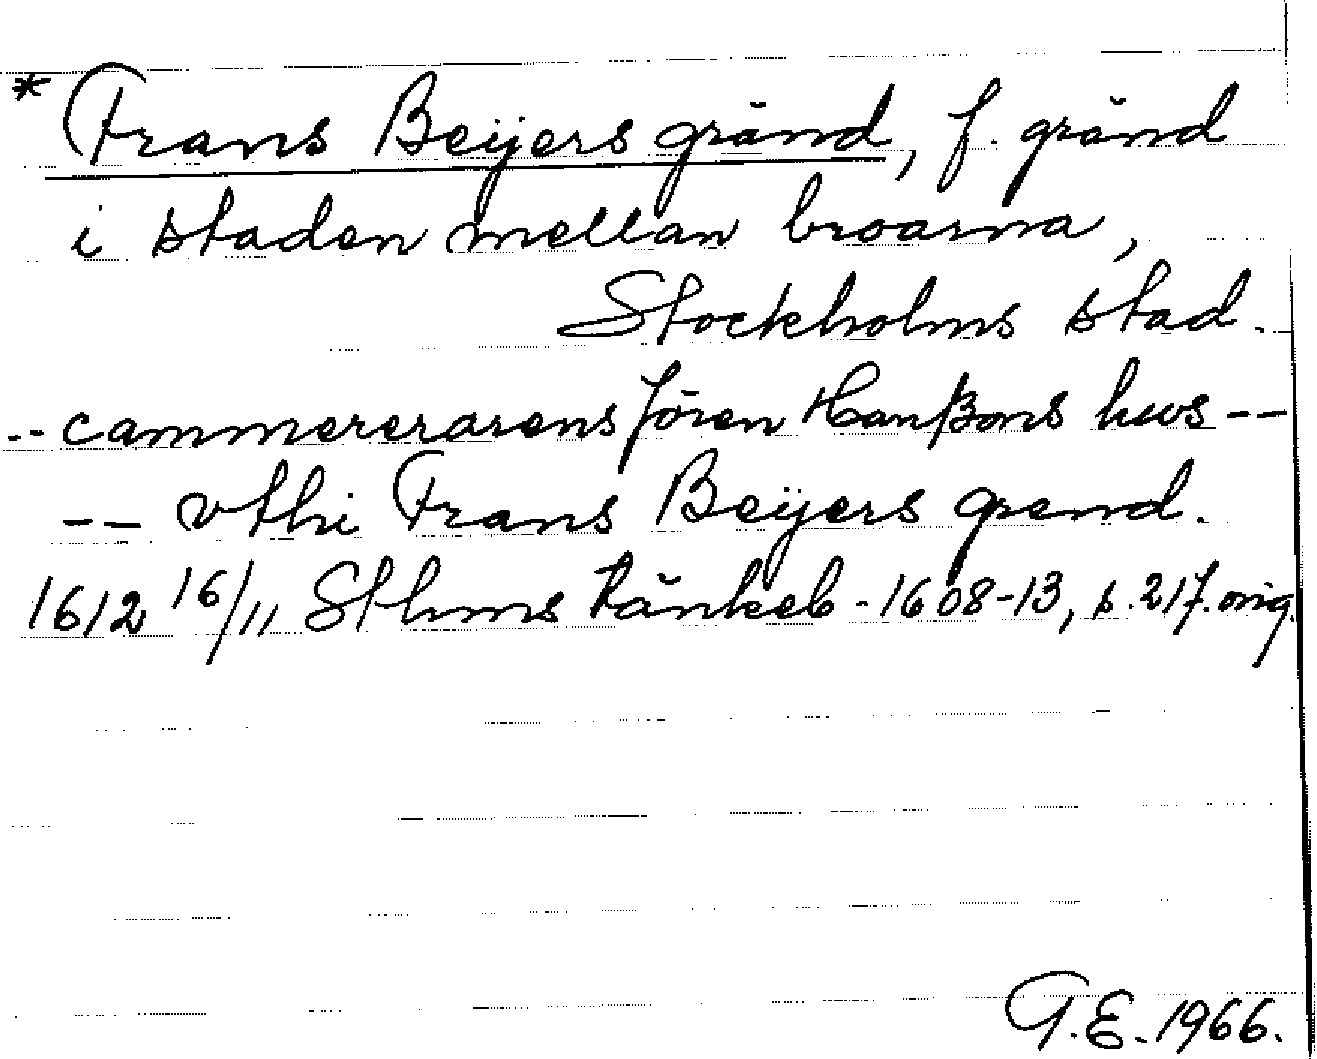 * Frans Beijers gränd, f. gränd
i staden mellan broarna,
Stockholms stad.
-- cammererarens Jören Hanßons hws --
-- vthi Frans Beÿers grend.
1612 16/11 Sthms tänkeb. 1608-13, s. 217. orig.
G.E. 1966.